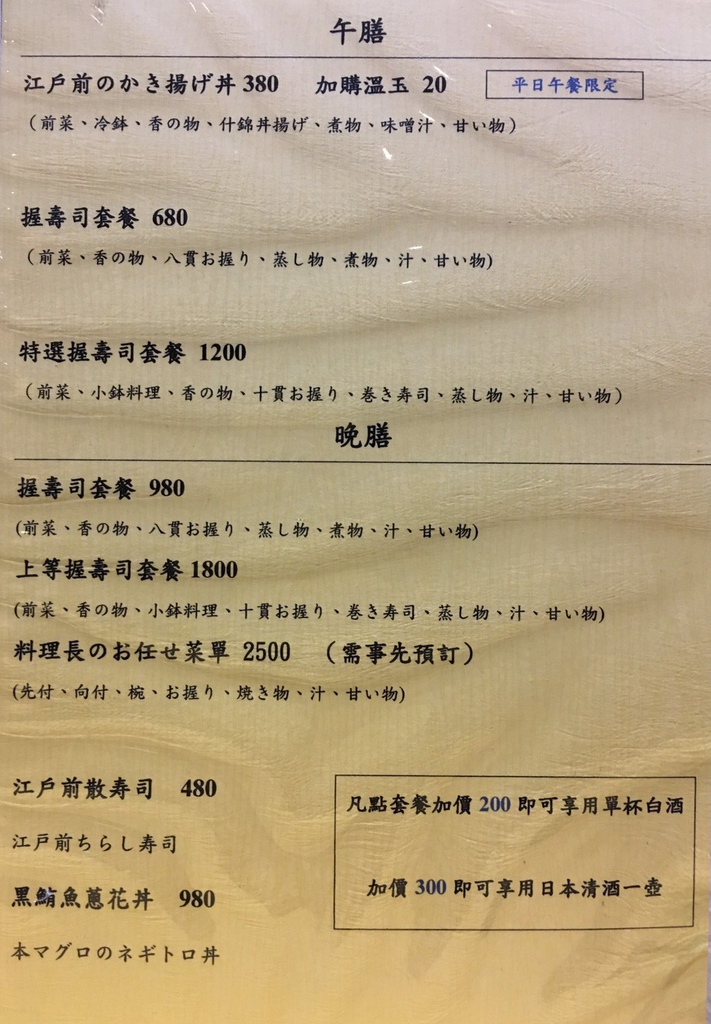 午膳
江戶前のかき揚げ丼 380 加購溫玉 20 平日午餐限定
（前菜、冷鉢、香の物、什錦丼揚げ、煮物、味噌汁、甘い物）
握壽司套餐 680
（前菜、香の物、八貫お握り、蒸し物、煮物、汁、甘い物)
特選握壽司套餐 1200
（前菜、小鉢料理、香の物、十貫お握り、巻き寿司、蒸し物、汁、甘い物）
晚膳
握壽司套餐 980
(前菜、香の物、八貫お握り、蒸し物、煮物、汁、甘い物)
上等握壽司套餐 1800
(前菜、香の物、小鉢料理、十貫お握り、巻き寿司、蒸し物、汁、甘い物)
料理長のお任せ菜單 2500 （需事先預訂）
(先付、向付、椀、お握り、焼き物、汁、甘い物)
江戶前散寿司 480
江戸前ちらし寿司
黑鮪魚蔥花丼 980
本マグロのネギトロ丼
凡點套餐加價 200 即可享用單杯白酒
加價 300 即可享用日本清酒一壺